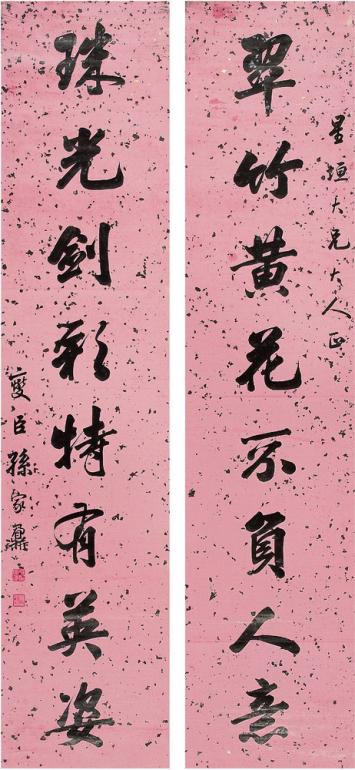 星垣大兄大人正
翠竹黄花不負人意
珠光劍彩特有英姿
燮臣孫家鼐